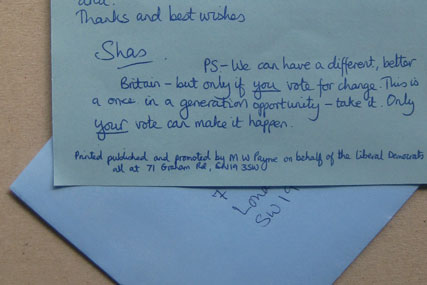 Thanks and best wishes
Shas.
PS:- We can have a different, better
Britain - but only if you vote for change. This is
a once in a generation opportunity - take it. Only
your vote can make it happen.
Printed published and promoted by M W Payne on behalf of the Liberal Democrats
all at 71 Graham Rd, SW19 3SW
7
Lon
SW19